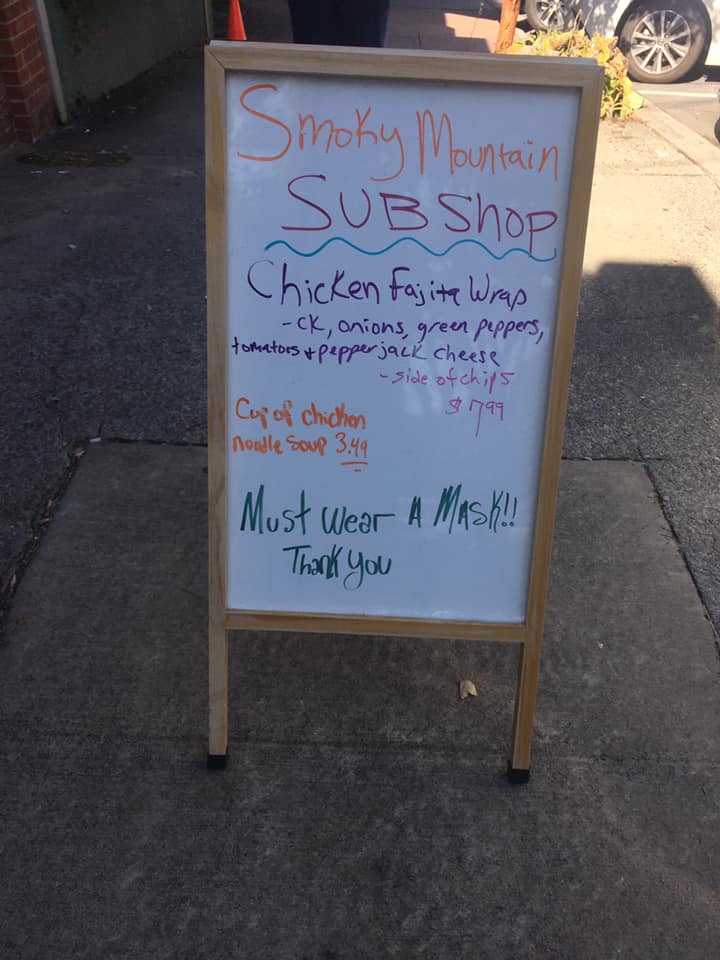 Smoky Mountain
SUB SHOP
Chicken Fajita Wrap
-CK, onions, green peppers,
tomatoes + pepper jack cheese
- side of chips
$7.99
Cup of chicken
noodle soup 3.49
Must Wear A MASK!!
Thank You